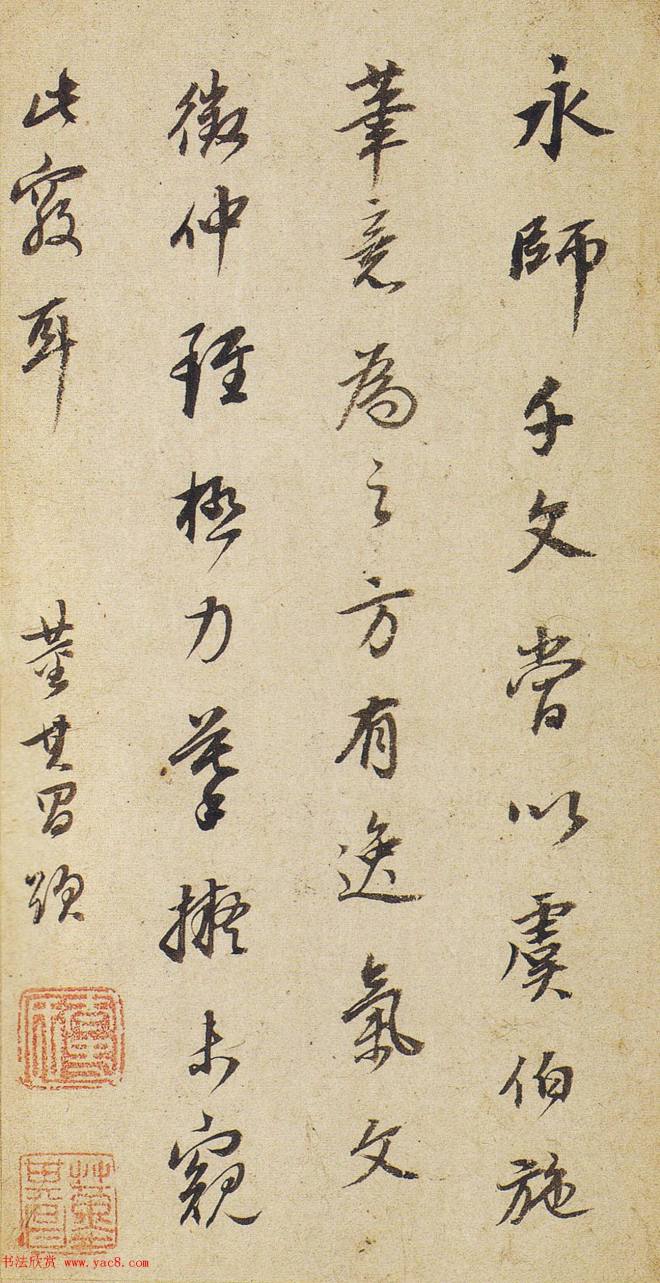 永師千文當以虞伯施
筆意為之方有逸氣文
徵仲雖極力摹擬未窺
此竅耳
董其昌題
董其昌
书法欣赏 www.yac8.com